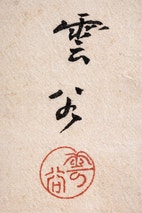 雲谷
雲谷